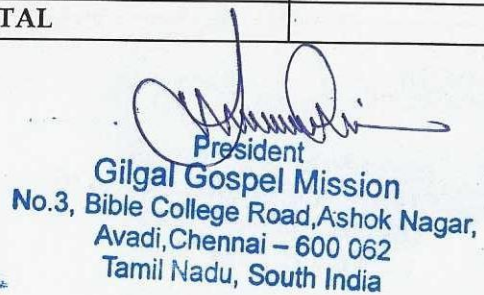 TAL
President
Gilgal Gospel Mission
No.3, Bible College Road,Ashok Nagar,
Avadi,Chennai – 600 062
Tamil Nadu, South India